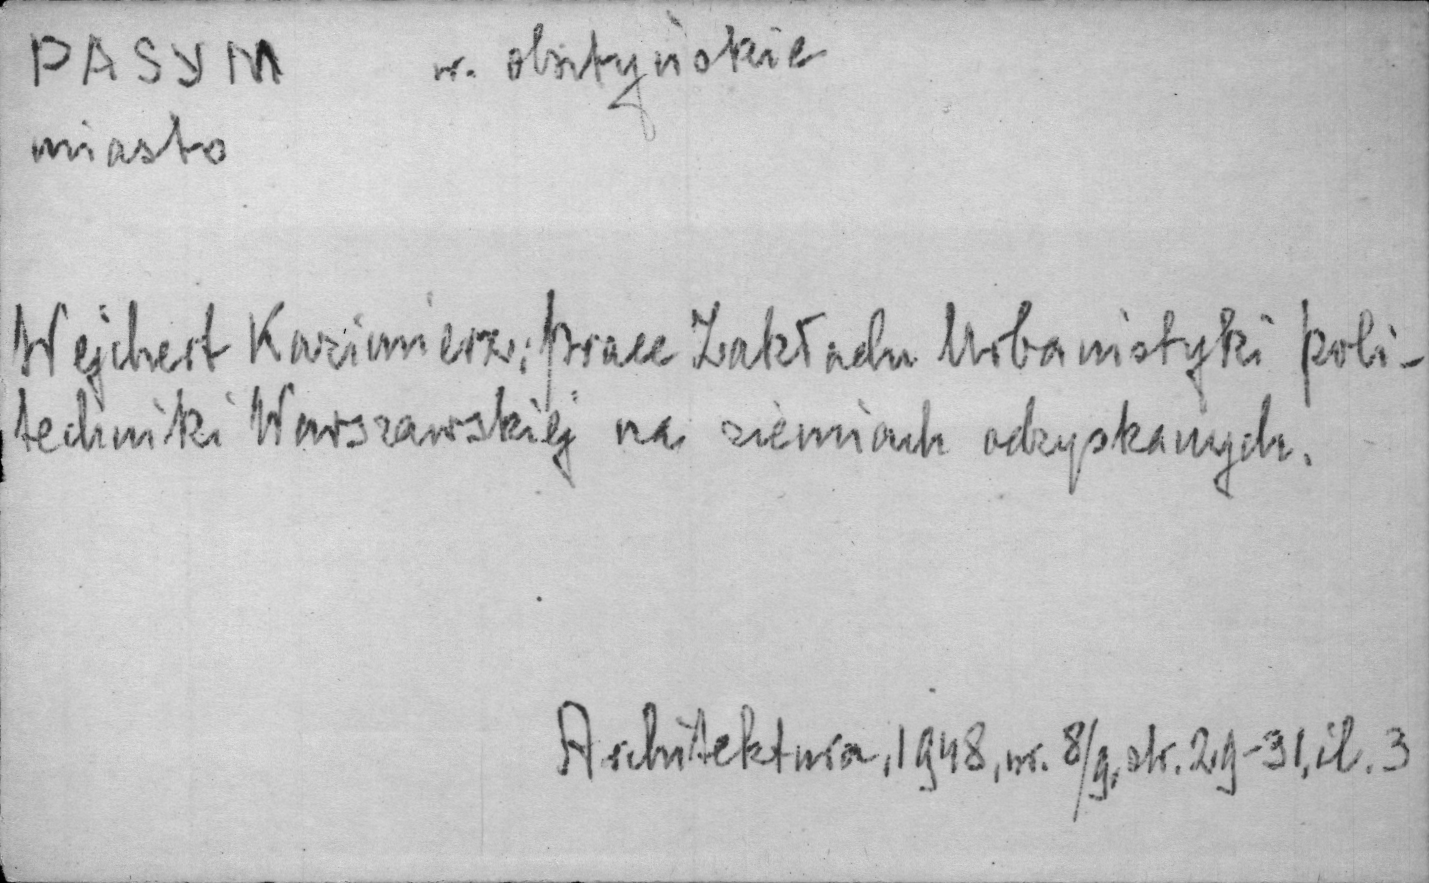 PASYM w. olsztyńskie
miasto
Wejchert Kazimierz; Prace Zakładu Urbanistyki Poli-
techniki Warszawskiej na ziemiach odzyskanych.
Architektura, 1948, nr. 8/9, str. 29-31, il. 3